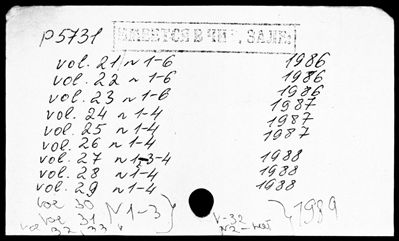 р 5731 ИМЕЕТСЯ В ЧИТ. ЗАЛЕ
vol. 21 N 1-6 1986
vol. 22 N 1-6 1986
vol. 23 N 1-6 1986
vol. 24 N 1-4 1987
vol. 25 N 1-4 1987
vol. 26 N 1-4 1987
vol. 27 N 1-3-4 1988
vol. 28 N 1-4 1988
vol. 29 N 1-4 1988
vol 30
vol 31 N 1-3 } V-32 } 1989
vol 32, 33 N2-нет